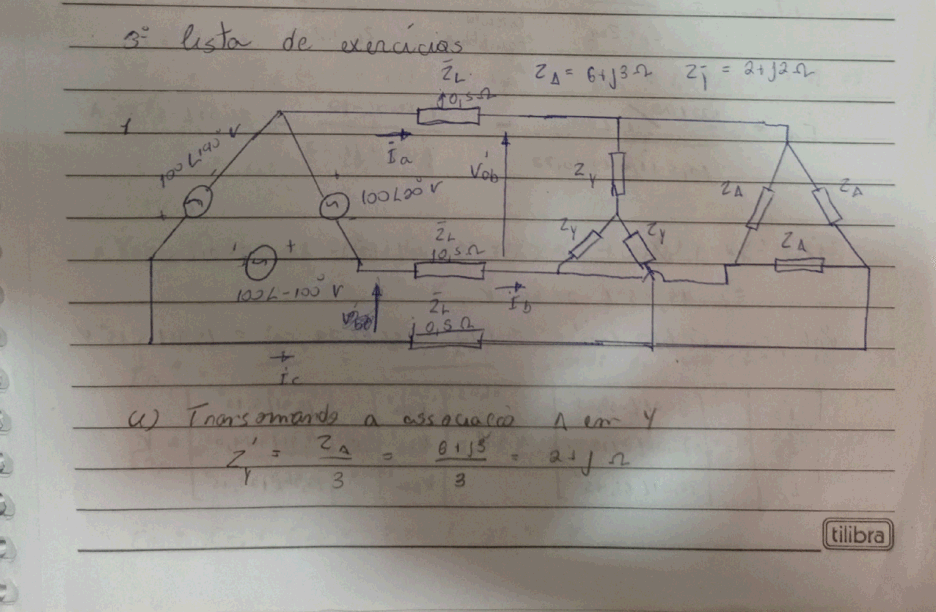 3ª lista de exercícios
Z̄L Z∆ = 6+j3 Ω Z̄Y = 2+j2 Ω
j0,5 Ω
1
100∠140° V
İa
V̇ab
ZY
Z∆ Z∆
+ -
+
100∠20° V
-
Z̄L
j0,5 Ω
ZY ZY
Z∆
- +
100∠-100° V
İb
Z̄L
j0,5 Ω
İc
a) Transomando a associação ∆ em Y
Z'Y = Z∆/3 = 6+j3/3 = 2+j Ω
tilibra